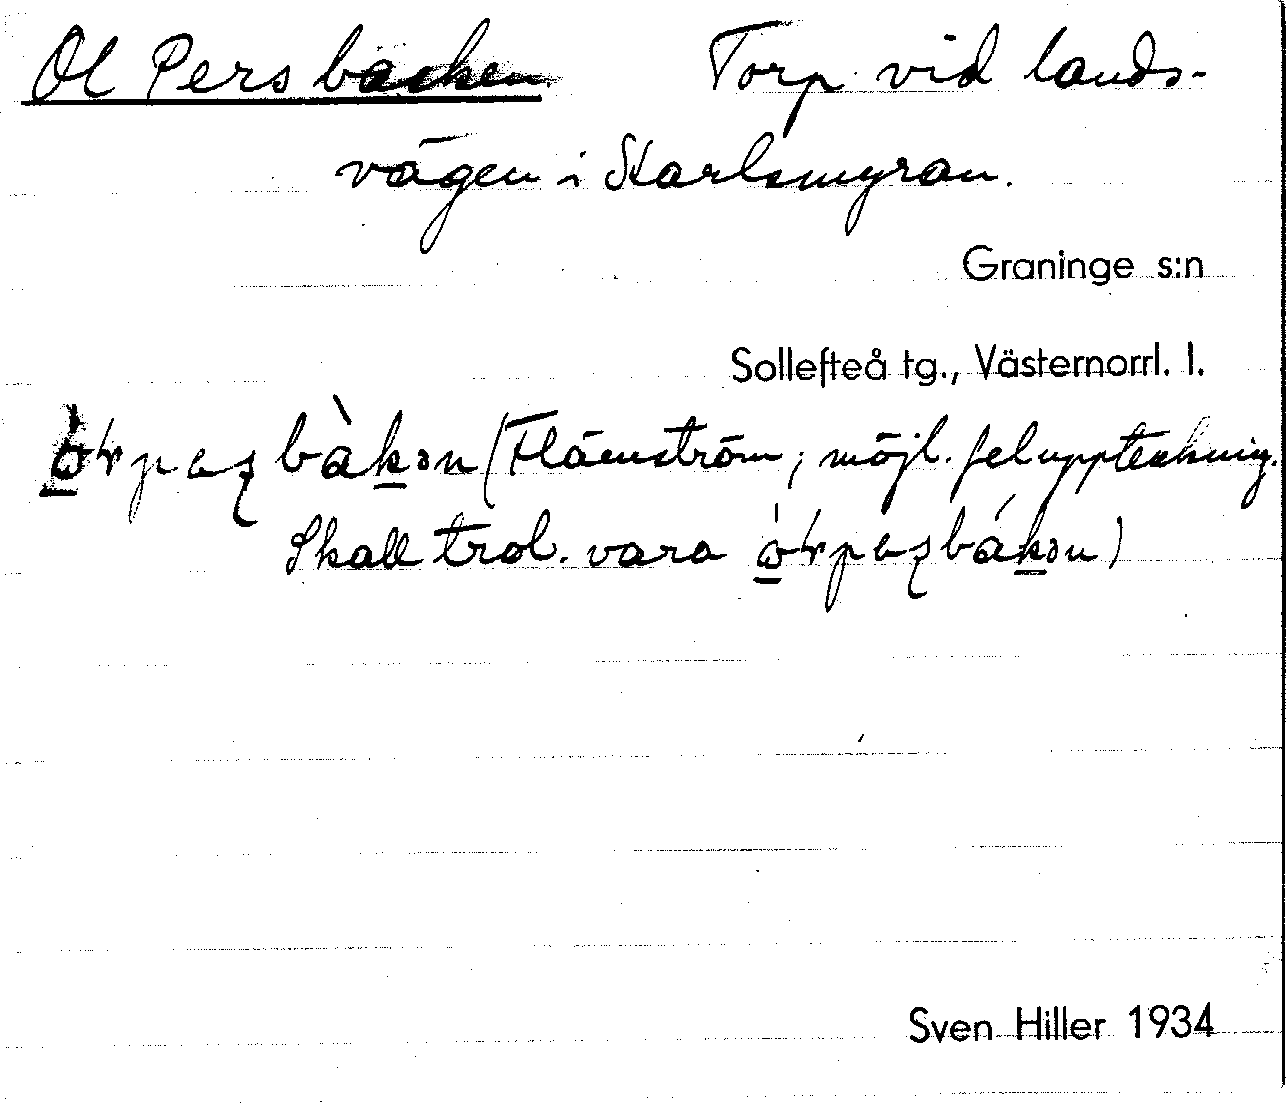 Ol Persbacken Torp vid lands-
vägen i Starlsmyran.
Graninge s:n
Sollefteå tg., Västernorrl. l.
(Flämström; möjl. feluppteckning.
Skall trol. vara
Sven Hiller 1934